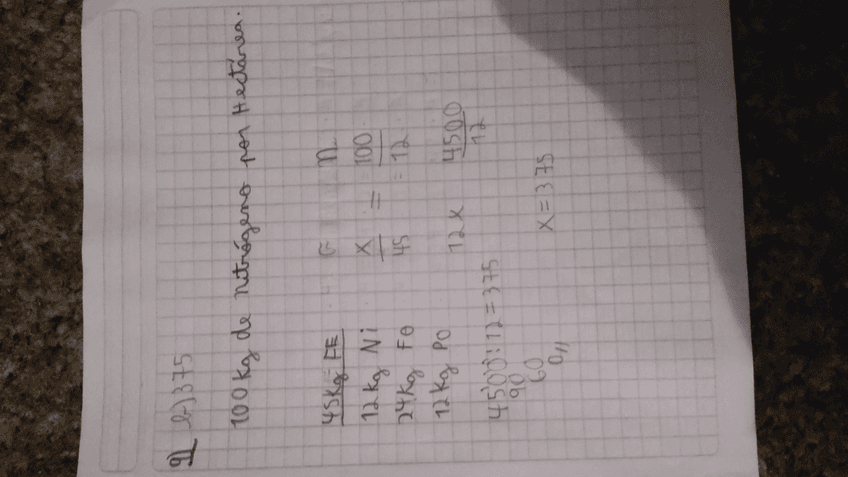 9) b) 375
100 kg de nitrógeno por Hectárea.
45 kg FE
12 kg Ni
24 kg FO
12 kg PO
F n
X = 100
45 12
12 X 4500
12
4500:12=375
90
60
0//
X = 375